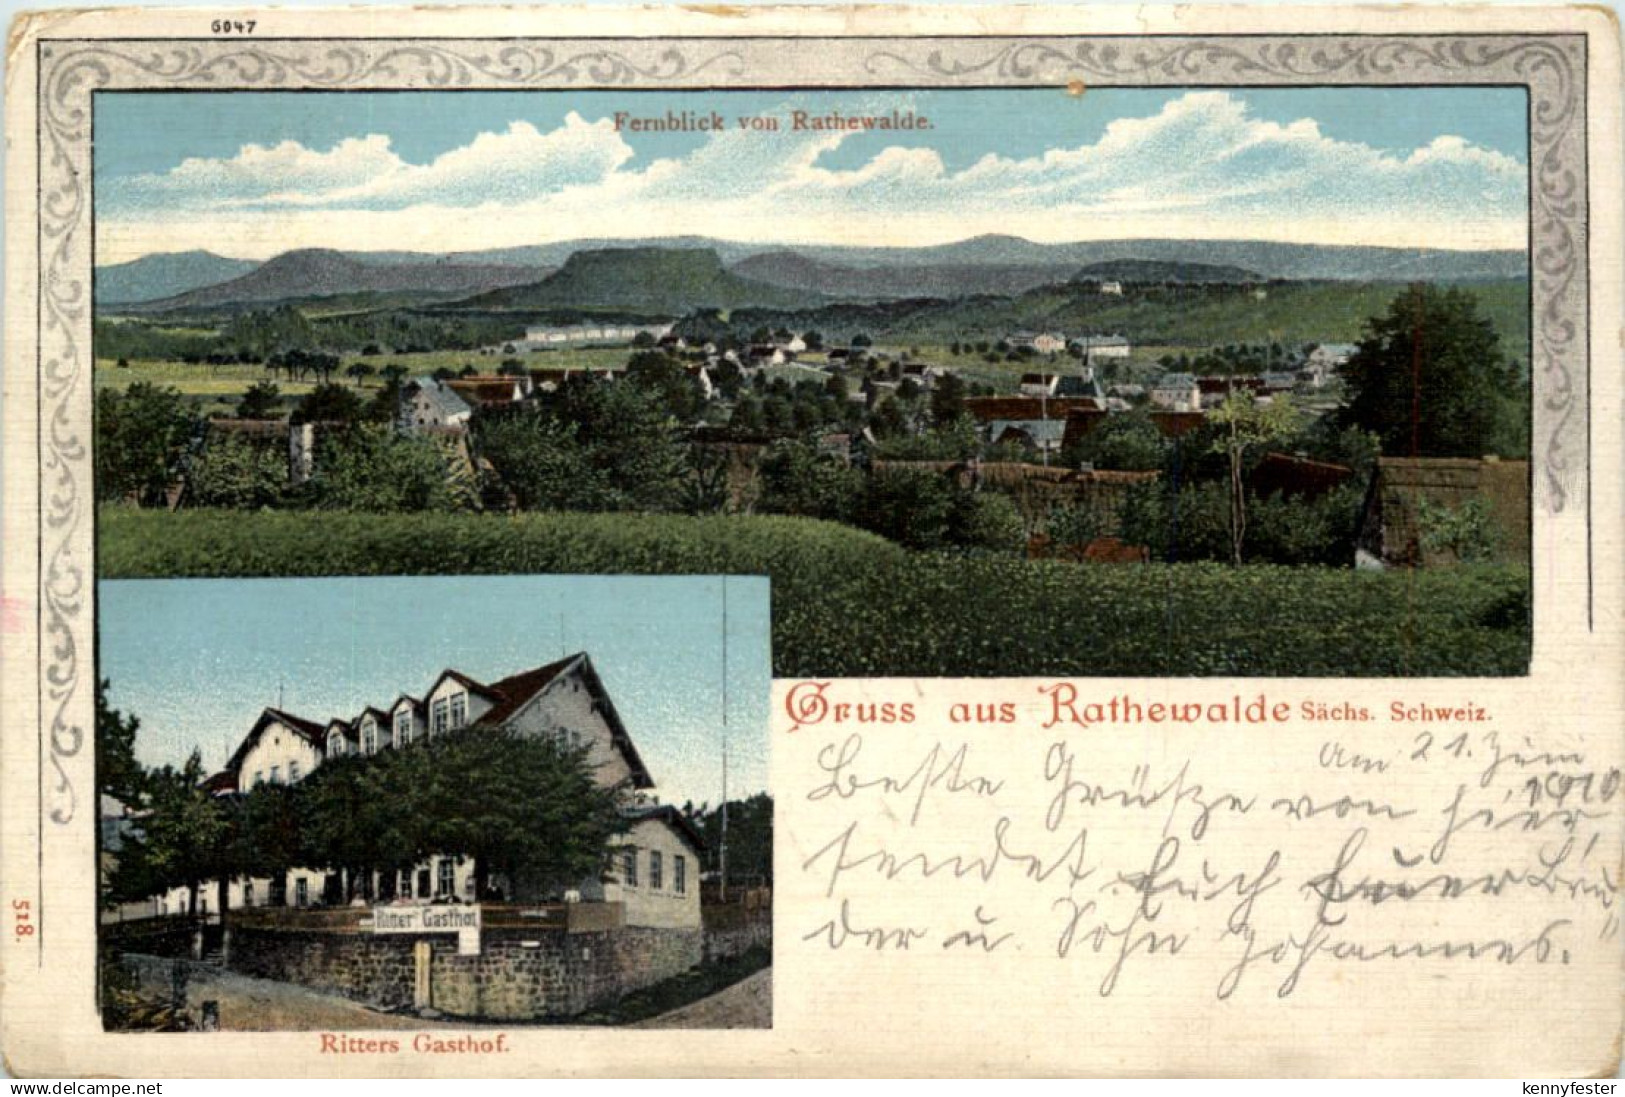 6047
Fernblick von Rathewalde.
Gruss aus Rathewalde Sächs. Schweiz.
Am 21. Juni
1910
Beste Grüsze von hier
sendet Euch Euer Bru
der u. Sohn Johannes.
Ritter Gasthof
518.
Ritters Gasthof.
www.delcampe.net
kennyfester